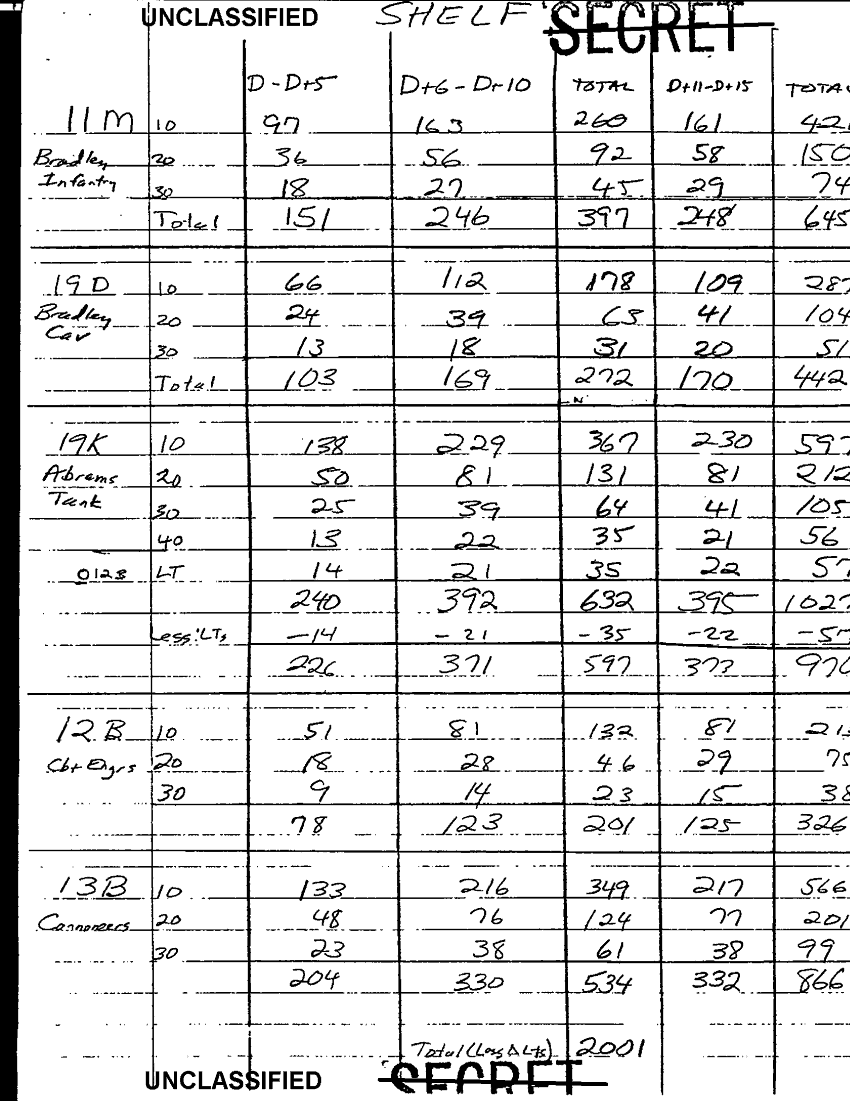 UNCLASSIFIED SHELF SECRET
D-D+5 D+6-D+10 TOTAL D+11-D+15 TOTAL
11M 10 97 163 260 161 421
Bradley 20 36 56 92 58 150
Infantry 30 18 27 45 29 74
Total 151 246 397 248 645
19D 10 66 112 178 109 287
Bradley 20 24 39 63 41 104
Cav 30 13 18 31 20 51
Total 103 169 272 170 442
19K 10 138 229 367 230 597
Abrams 20 50 81 131 81 212
Tank 30 25 39 64 41 105
40 13 22 35 21 56
LT 14 21 35 22 57
240 392 632 395 1027
Less LTs -14 -21 -35 -22 -57
226 371 597 373 970
12B 10 51 81 132 81 213
Cbt Engrs 20 18 28 46 29 75
30 9 14 23 15 38
78 123 201 125 326
13B 10 133 216 349 217 566
Cannoneers 20 48 76 124 77 201
30 23 38 61 38 99
204 330 534 332 866
Total 2001
UNCLASSIFIED SECRET